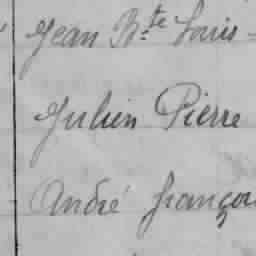 Jean B.te Louis
Julien Pierre
André françois